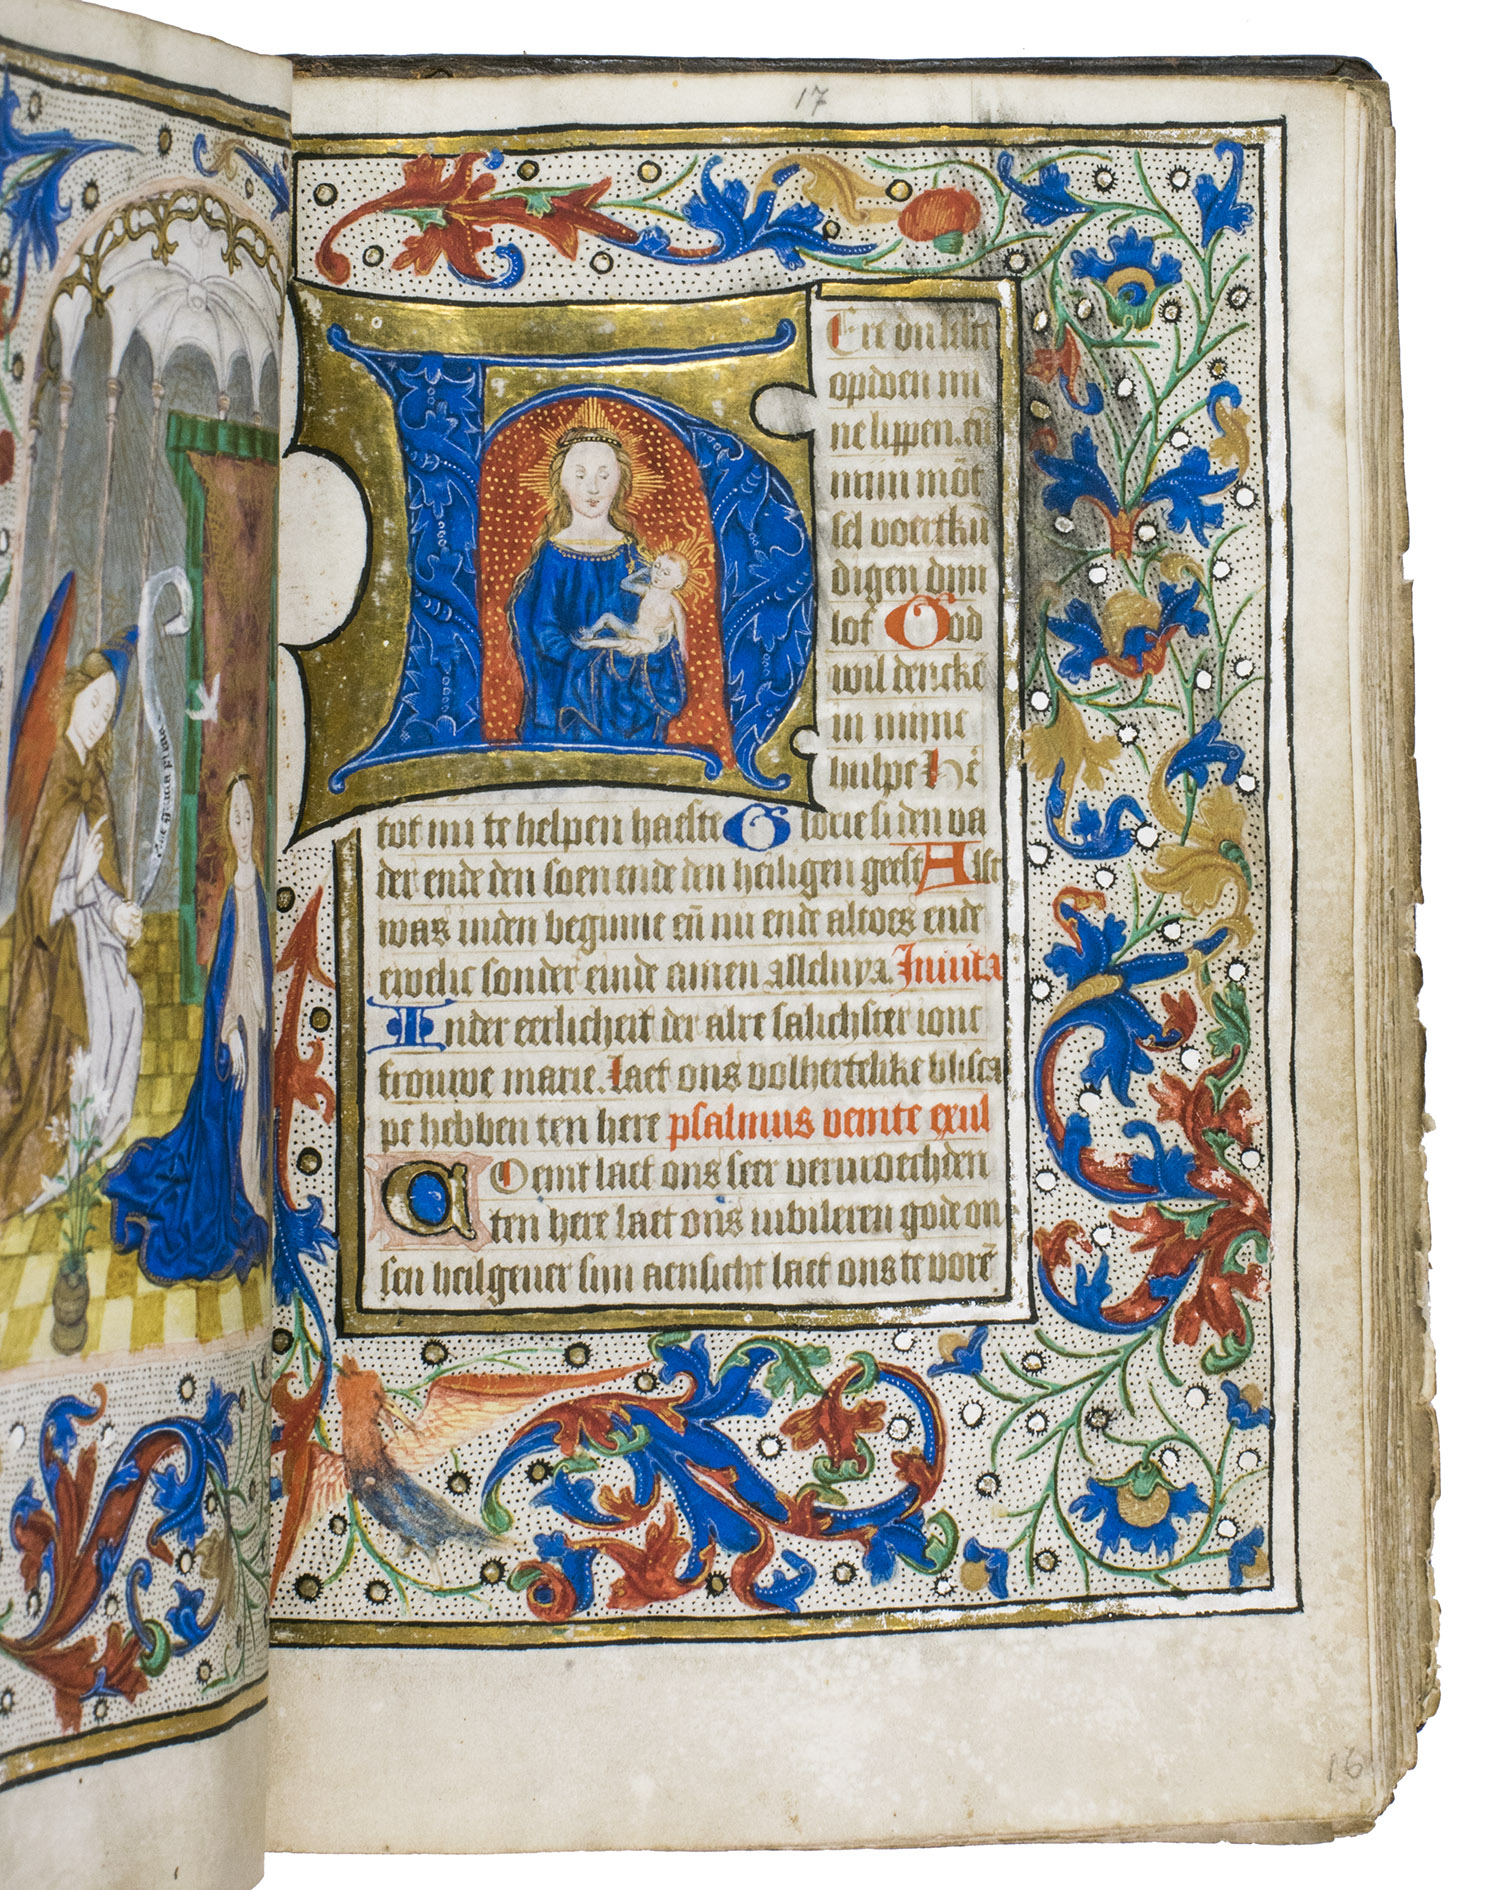 17
Ert du silt
opdoen mi
ne lippen. eñ
mijn mōt
sel voertkū
digen dijn
lof God
wil denckē
in mijne
hulpe hē
tot mi te helpen haeste Glorie si den va
der ende den soen ende den heiligen geest Alst
was inden beginne eñ nu ende altoes ende
ewelic sonder einde amen alleluya. Inuita
Inder eerlicheit der alre salichster ionc
frouwe marie. Laet ons volhertelike blisca
pe hebben ten here psalmus venite exul
Coemt laet ons seer vervroechden
ten here laet ons iubileren gode on
sen heilgever sijn aensicht laet ons te vorē
16